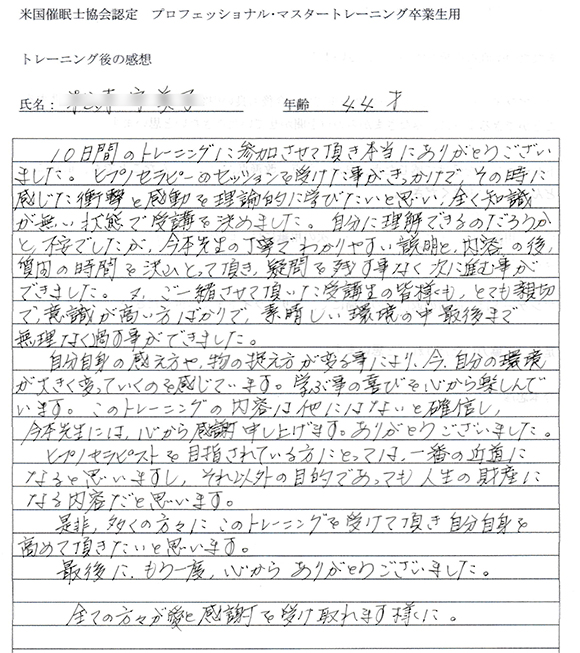 米国催眠士協会認定　プロフェッショナル・マスタートレーニング卒業生用
トレーニング後の感想
氏名：
年齢　44才
10日間のトレーニングに参加させて頂き本当にありがとうござい
ました。ヒプノセラピーのセッションを受けた事がきっかけで、その時に
感じた衝撃と感動を理論的に学びたいと思い、全く知識
が無い状態で受講を決めました。自分に理解できるのだろうか
と不安でしたが、今本先生の丁寧でわかりやすい説明と、内容の後、
質問の時間を沢山とって頂き、疑問を残す事なく次に進む事が
できました。又、ご一緒させて頂いた受講生の皆様も、とても親切
で意識が高い方ばかりで、素晴しい環境の中最後まで
無理なく過す事ができました。
自分自身の感え方や、物の捉え方が変る事により、今、自分の環境
が大きく変っていくのを感じています。学ぶ事の喜びを心から楽しんで
います。このトレーニングの内容は他にはないと確信し、
今本先生には、心から感謝申し上げます。ありがとうございました。
ヒプノセラピストを目指されている方にとっては、一番の近道に
なると思いますし、それ以外の目的であっても人生の財産に
なる内容だと思います。
是非、多くの方々にこのトレーニングを受けて頂き自分自身を
高めて頂きたいと思います。
最後に、もう一度、心からありがとうございました。
全ての方々が愛と感謝を受け取れます様に。